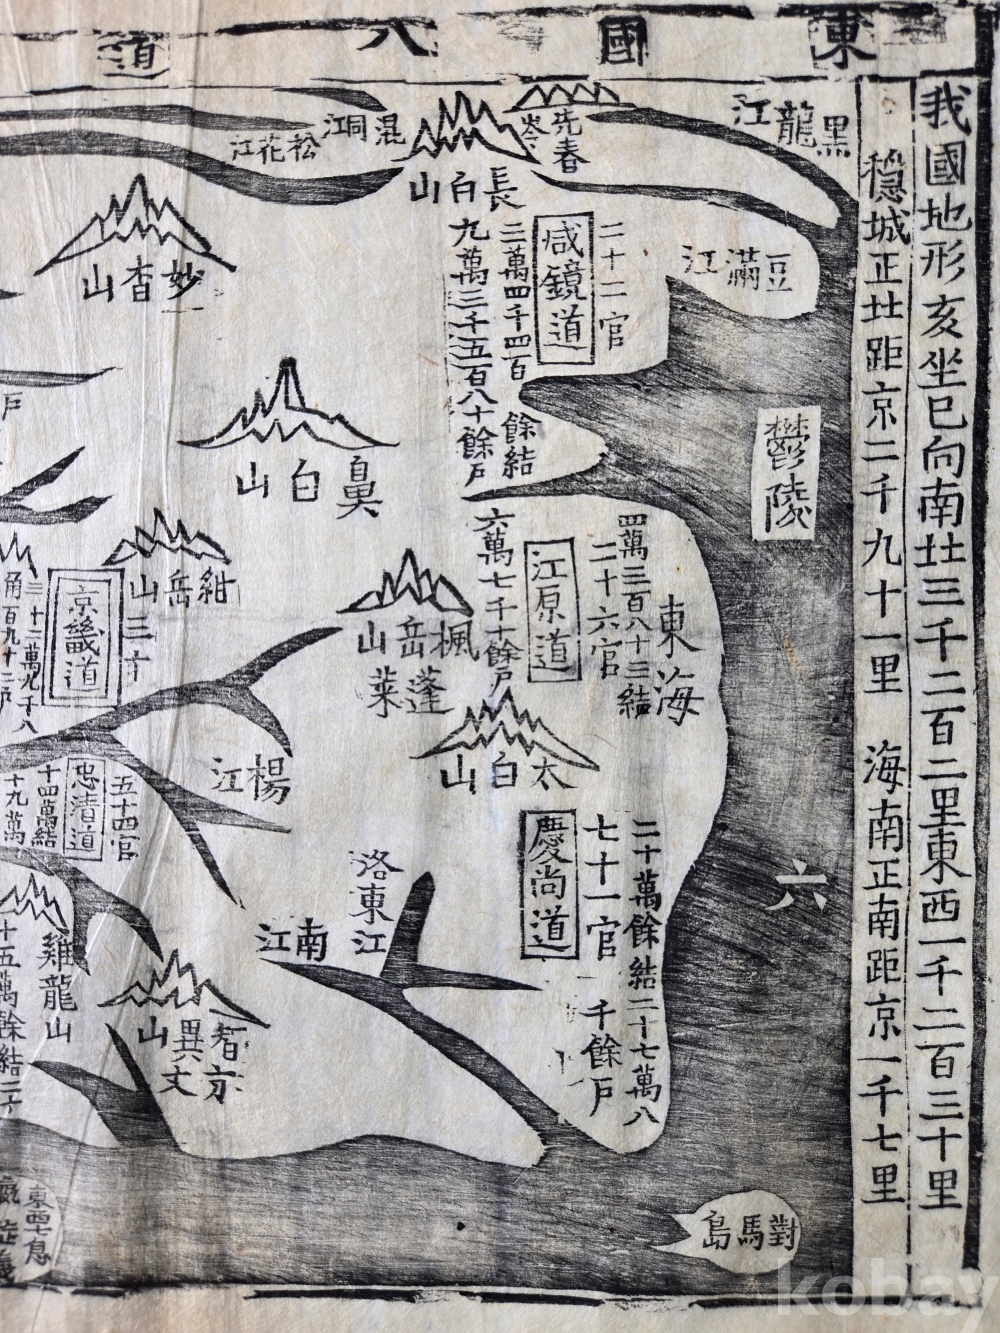 東國八道
我國地形亥坐巳向南北三千二百二里東西一千二百三十里
穩城正北距京二千九十一里 海南正南距京一千七里
黑龍江
先春岺
混同江
松花江
長白山
豆滿江
妙香山
二十二官
咸鏡道
三萬四千四百餘結
九萬三千五百八十餘戶
鬱陵
鼻白山
四萬三百八十三結
二十六官
江原道
六萬七千十餘戶
東海
紺岳山
楓岳山
蓬萊
三十
京畿道
太白山
楊江
五十四官
忠清道
十四萬結
十九萬
二十萬餘結二十七萬八千餘戶
七十一官
慶尚道
六
洛東江
南江
雞龍山
智異山
亦文
十五萬餘結二十
對馬島
kobay